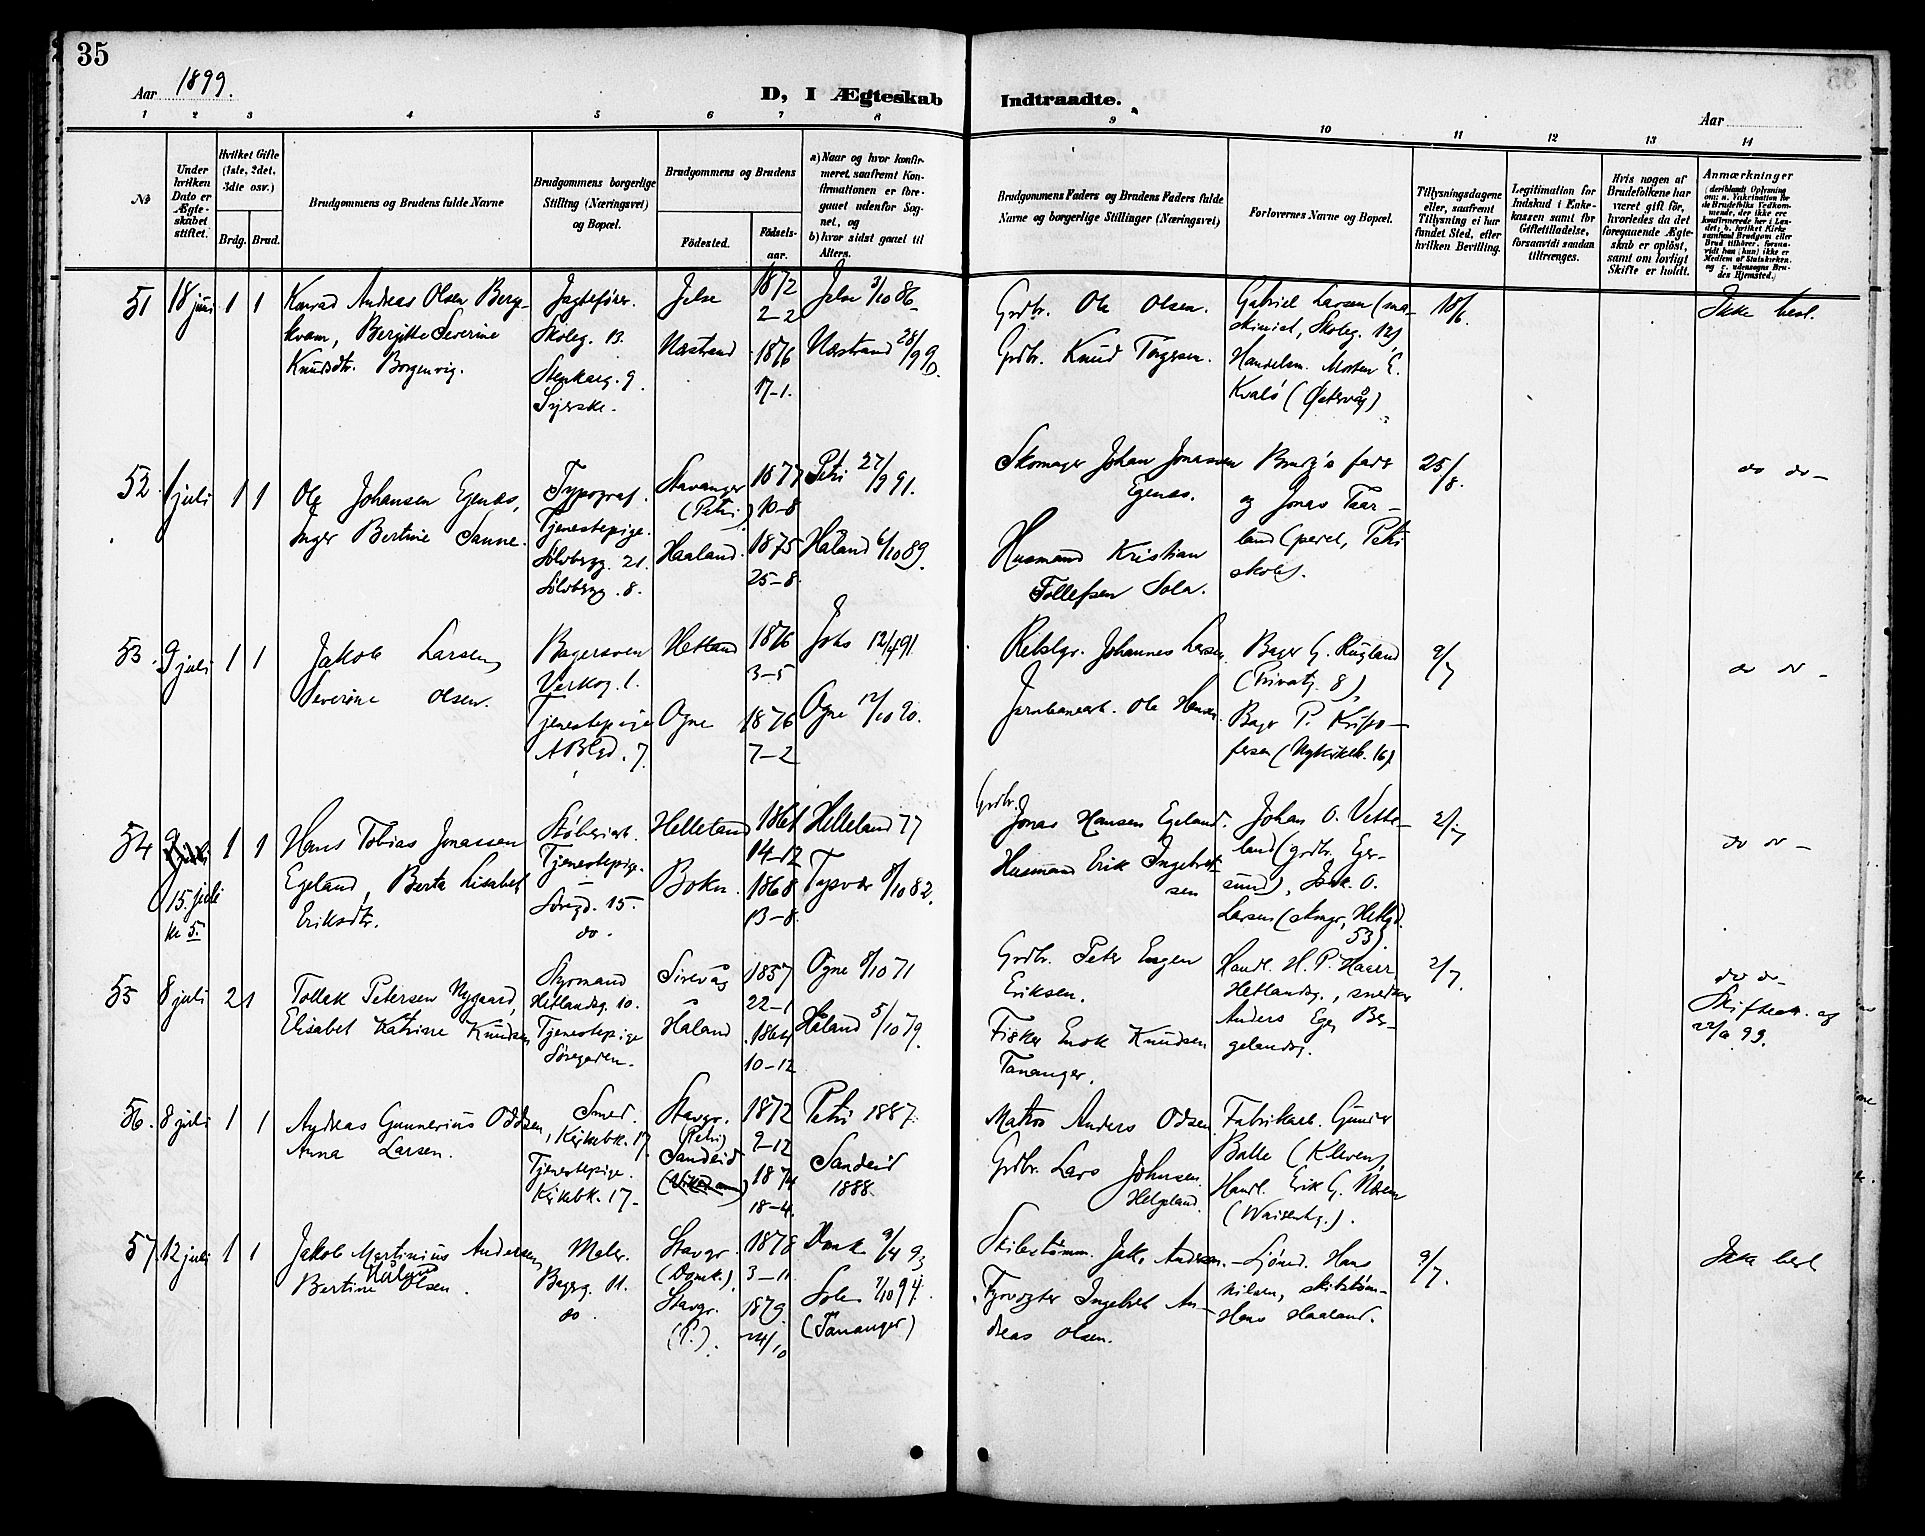 35
Aar 1899.
D, I Ægteskab Indtraadte.
Aar
1 2 3 4 5 6 7 8 9 10 11 12 13 14
No
Under hvilken Dato er Ægteskabet stiftet.
Hvilket Gifte (1ste, 2det, 3die osv.)
Brdg. Brud.
Brudgommens og Brudens fulde Navne
Brudgommens borgerlige Stilling (Næringsvei) og Bopæl.
Brudgommens og Brudens
Fødested. Fødselsaar.
a) Naar og hvor konfirmeret, saafremt Konfirmationen er foregaaet udenfor Sognet, og
b) hvor sidst gaaet til Alters.
Brudgommens Faders og Brudens Faders fulde Navne og borgerlige Stillinger (Næringsvei)
Forlovernes Navne og Bopæl.
Tillysningsdagene eller, saafremt Tillysning ei har fundet Sted, efter hvilken Bevilling.
Legitimation for Indskud i Enkekassen samt for Giftetilladelse, forsaavidt saadan tiltrænges.
Hvis nogen af Brudefolkene har været gift før, hvorledes da det foregaaende Ægteskab er opløst, samt om lovligt Skifte er holdt.
Anmærkninger
51 18 juni 1 1
Konrad Andreas Olsen Bergekvam, Bergitte Severine
Knudsdtr. Borgenvig.
Jagtefører.
Skoleg. 13.
Stenkarg. 9.
Syerske.
Jelse
Nastrand
1872
2–2
1876
17–1.
Jelse 3/10 86
Nastrand 28/9 90.
Grdbr. Ole Olsen.
Grdbr. Knud Torgersen.
Gabriel Larsen (maskinist, Skoleg. 12)
Handelsm. Morten E.
Kvalø (Østervåg)
18/6.
Ikke besl.
52. 1 juli 1 1
Ole Johansen Egenæs,
Inger Bertine Sanne.
Typograf.
Tjenestepige.
Sølvbergg. 21.
Sølvbergg. 8.
Stavanger
(Petri)
Haaland.
1877
10–8
1875
25–8.
Petri 27/9 91.
Håland 6/10 89.
Skomager Johan Jonassen
Egenæs.
Husmand Kristian
Tollefsen Sola.
Brudg's fader
og Jonas Taarland (pared, Petri
skole).
25/8.
do do –
53. 9 juli 1 1
Jakob Larsen,
Severine Olsen.
Bagersven
Verksg. 1.
Tjenestepige
A B Lgd. 7.
Hetland
Ogne
1876
3–5
1876
7–2
Johs 12/4 91.
Ogne 12/10 90.
Rebslgr. Johannes Larsen.
Jernbanearb. Ole Hansen.
Bager G. Rugland
(Privatg. 8),
Bager P. Kristofersen (Nykirkeb. 16)
9/7
do do –
54 9 juli 1 1
15. juli
kl 5.
Hans Tobias Jonassen
Egeland, Berta Lisabet
Eriksdtr.
Støberiarb.
Tjenestepige.
Søregd. 15.
do.
Helleland
Bokn.
1861
14–12
1868
13–8.
Helleland 77
Tysvær 8/10 82.
Grdbr.
Jonas Hansen Egeland.
Husmand Erik Ingebretsen
Johan O. Vetteland (grdbr. Egersund), O.
Larsen (skmgr, Hetlgd.
53).
2/7
do do –
55 8 juli 2 1
Tollak Petersen Nygaard,
Elisabet Katrine Knudsen
Styrmand
Hetlandsg. 10.
Tjenestepige
Søregaden.
Sirevåg
Håland
1857
22–1
1864
10–12
Ogne 8/10 71
Håland 5/10 79.
Grdbr. Peter Engen
Eriksen.
Fisker Enok Knudsen
Tananger.
Handl. H. P. Haaer
Hetlandsg., snedker
Anders Ege, Bergelandsg.
2/7.
do do –
Skifteatt. af
99.
56. 8 juli 1 1
Andreas Gunnerius Oddsen,
Anna Larsen.
Smed.
Kirkebk. 17.
Tjenestepige.
Kirkebk. 17–
Stavgr.
(Petri)
Sandeid
1872
9–12
1874
18–4.
Petri 1887.
Sandeid
1888.
Matros Anders Odsen
Grdbr. Lars Johnsen
Helgeland.
Fabrikarb. Gunder
Balle (Kleven),
Handl. Erik G. Næsen
(Waisenhg.).
57. 12 juli 1 1
Jakob Martinius Andersen,
Bertine Olsen.
Maler.
Bergg. 11.
do.
Stavgr.
(Domk.)
Stavgr.
(P.).
1878
3–11
1879.
24/10
Domk. 9/4 93
Sole 7/10 94.
(Tananger)
Skibstømm. Jak. Andersen.
Fyrvogter Ingebret Andreas Olsen.
Sjömd. Hans
Nilsen, skibstøm-
Hans Haaland.
9/7.
Ikke besl